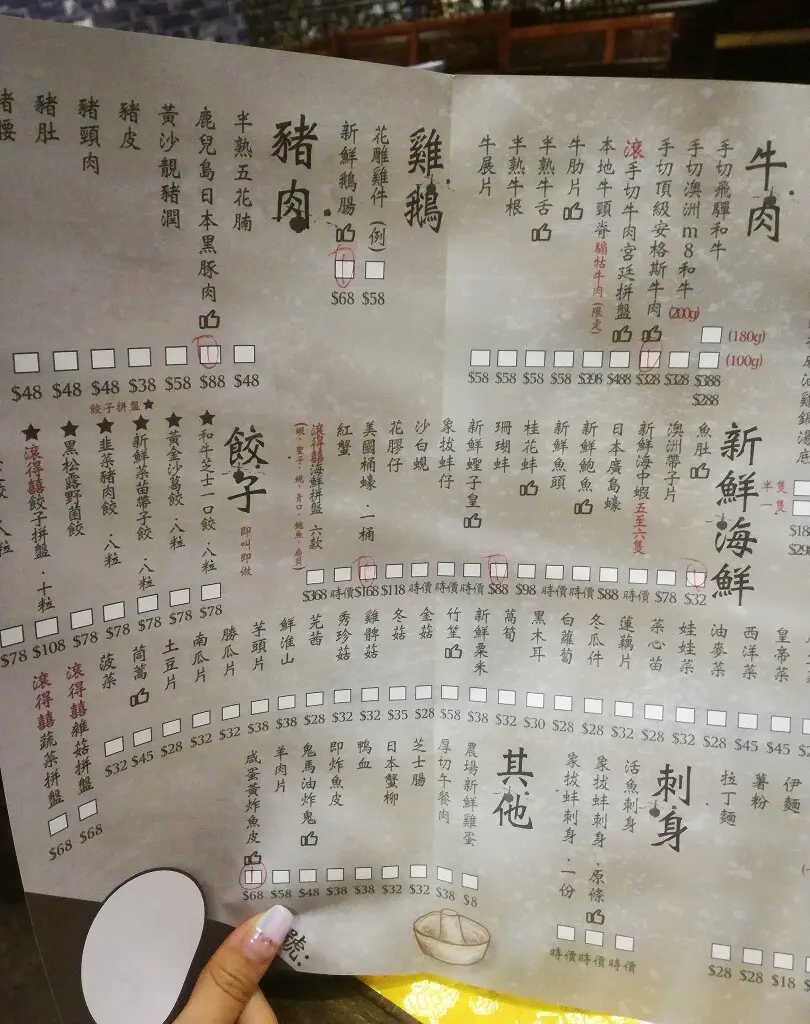 牛肉
手切飛驒和牛
(180g)
(100g)
$388
$288
手切澳洲m8和牛
(200g)
$328
手切頂級安格斯牛肉
$328
滾手切牛肉宮廷拼盤
$488
本地牛頸脊
(限定)
$398
牛肋片
$58
半熟牛舌
$58
半熟牛根
$58
牛展片
$58
雞鵝
花雕雞件 (例)
$58
新鮮鵝腸
$68
豬肉
半熟五花腩
$48
鹿兒島日本黑豚肉
$88
黃沙靚豬潤
$58
豬皮
$38
豬頸肉
$48
豬肚
$48
豬腰
$48
半隻
一隻
新鮮海鮮
魚肚
$32
澳洲帶子片
$78
新鮮海中蝦 五至六隻
時價
日本廣島蠔
$88
新鮮鮑魚
時價
新鮮魚頭
時價
桂花蚌
$98
珊瑚蚌
$88
新鮮蟶子皇
時價
象拔蚌仔
時價
沙白蜆
時價
花膠仔
$118
美國桶蠔．一桶
$168
紅蟹
時價
滾得囍海鮮拼盤 六款
$368
餃子
即叫即做
★和牛芝士一口餃．八粒
$78
★黃金沙葛餃．八粒
$78
★新鮮菜苗帶子餃．八粒
$78
★韭菜豬肉餃．八粒
$78
★黑松露野菌餃
$78
★滾得囍餃子拼盤．十粒
$108
餃子拼盤★
八粒
$78
皇帝菜
$45
西洋菜
$45
油麥菜
$28
娃娃菜
$32
菜心苗
$28
蓮藕片
$32
冬瓜件
$28
白蘿蔔
$28
黑木耳
$30
萵筍
$32
新鮮粟米
$38
竹笙
$58
金菇
$28
冬菇
$35
雞髀菇
$32
秀珍菇
$32
芫茜
$28
鮮淮山
$38
芋頭片
$38
勝瓜片
$32
南瓜片
$32
土豆片
$28
茼蒿
$45
菠菜
$32
滾得囍雜菇拼盤
$68
滾得囍蔬菜拼盤
$68
伊麵
$18
薯粉
$28
拉丁麵
$28
刺身
活魚刺身
時價
象拔蚌刺身．原條
時價
象拔蚌刺身．一份
時價
其他
農場新鮮雞蛋
$8
厚切午餐肉
$38
芝士腸
$32
日本蟹柳
$32
鴨血
$38
即炸魚皮
$38
鬼馬油炸鬼
$48
羊肉片
$58
咸蛋黃炸魚皮
$68
號：